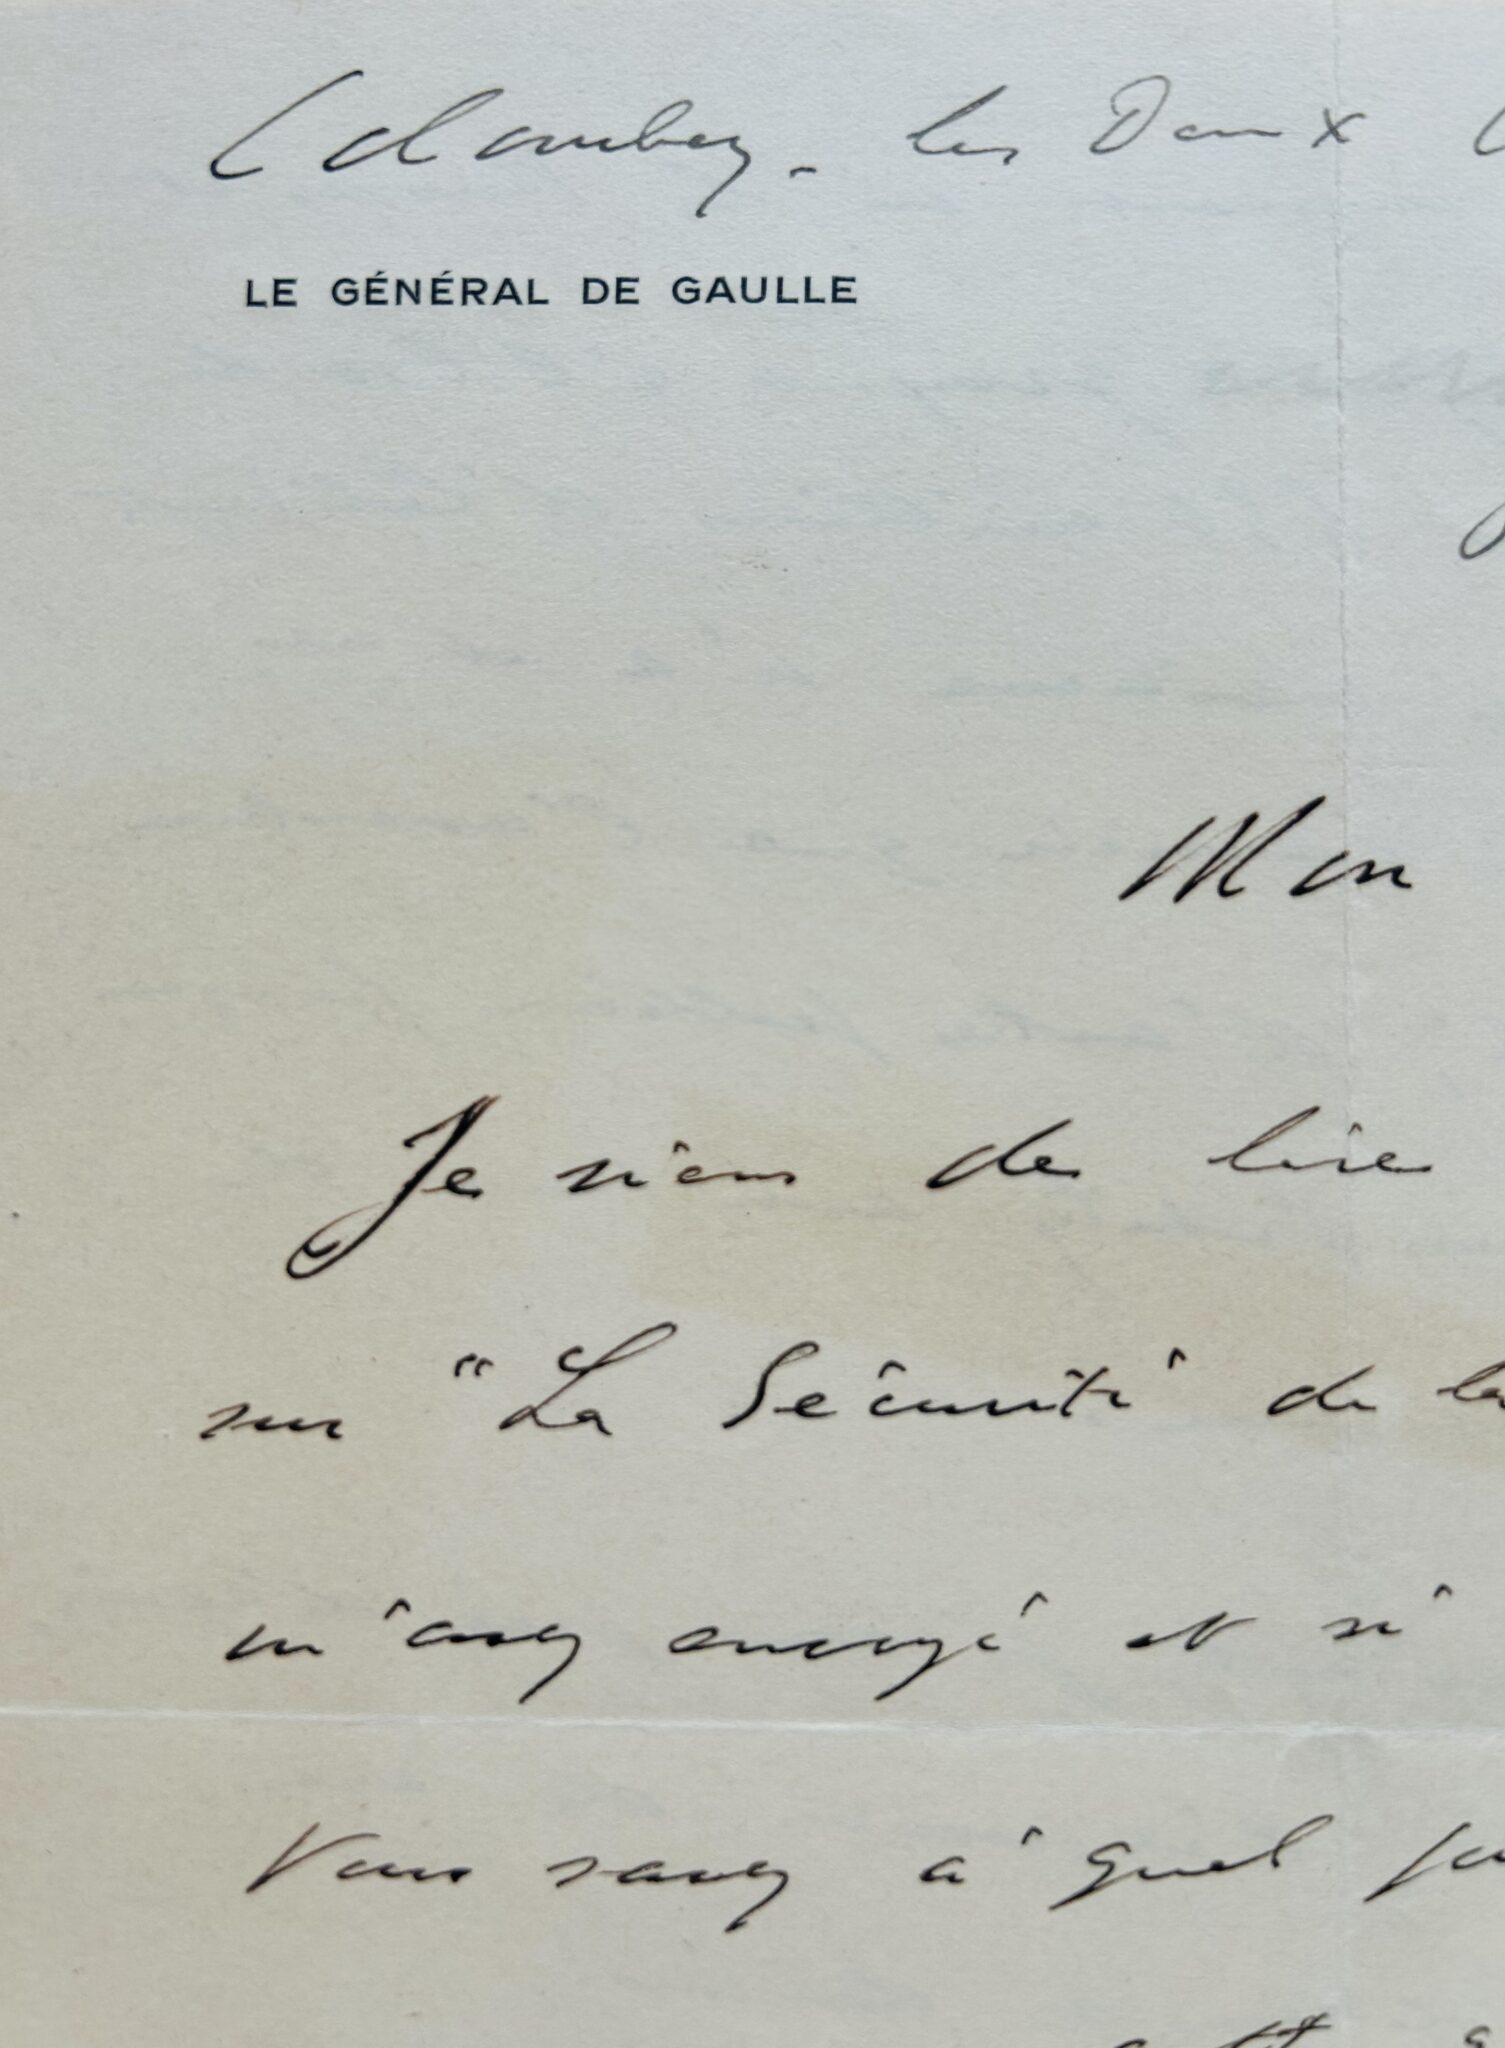 Colombey-les Deux
LE GÉNÉRAL DE GAULLE
Mon
Je viens de lire
sur "La Sécurité de la
m'avez envoyé et si
Vous savez à quel